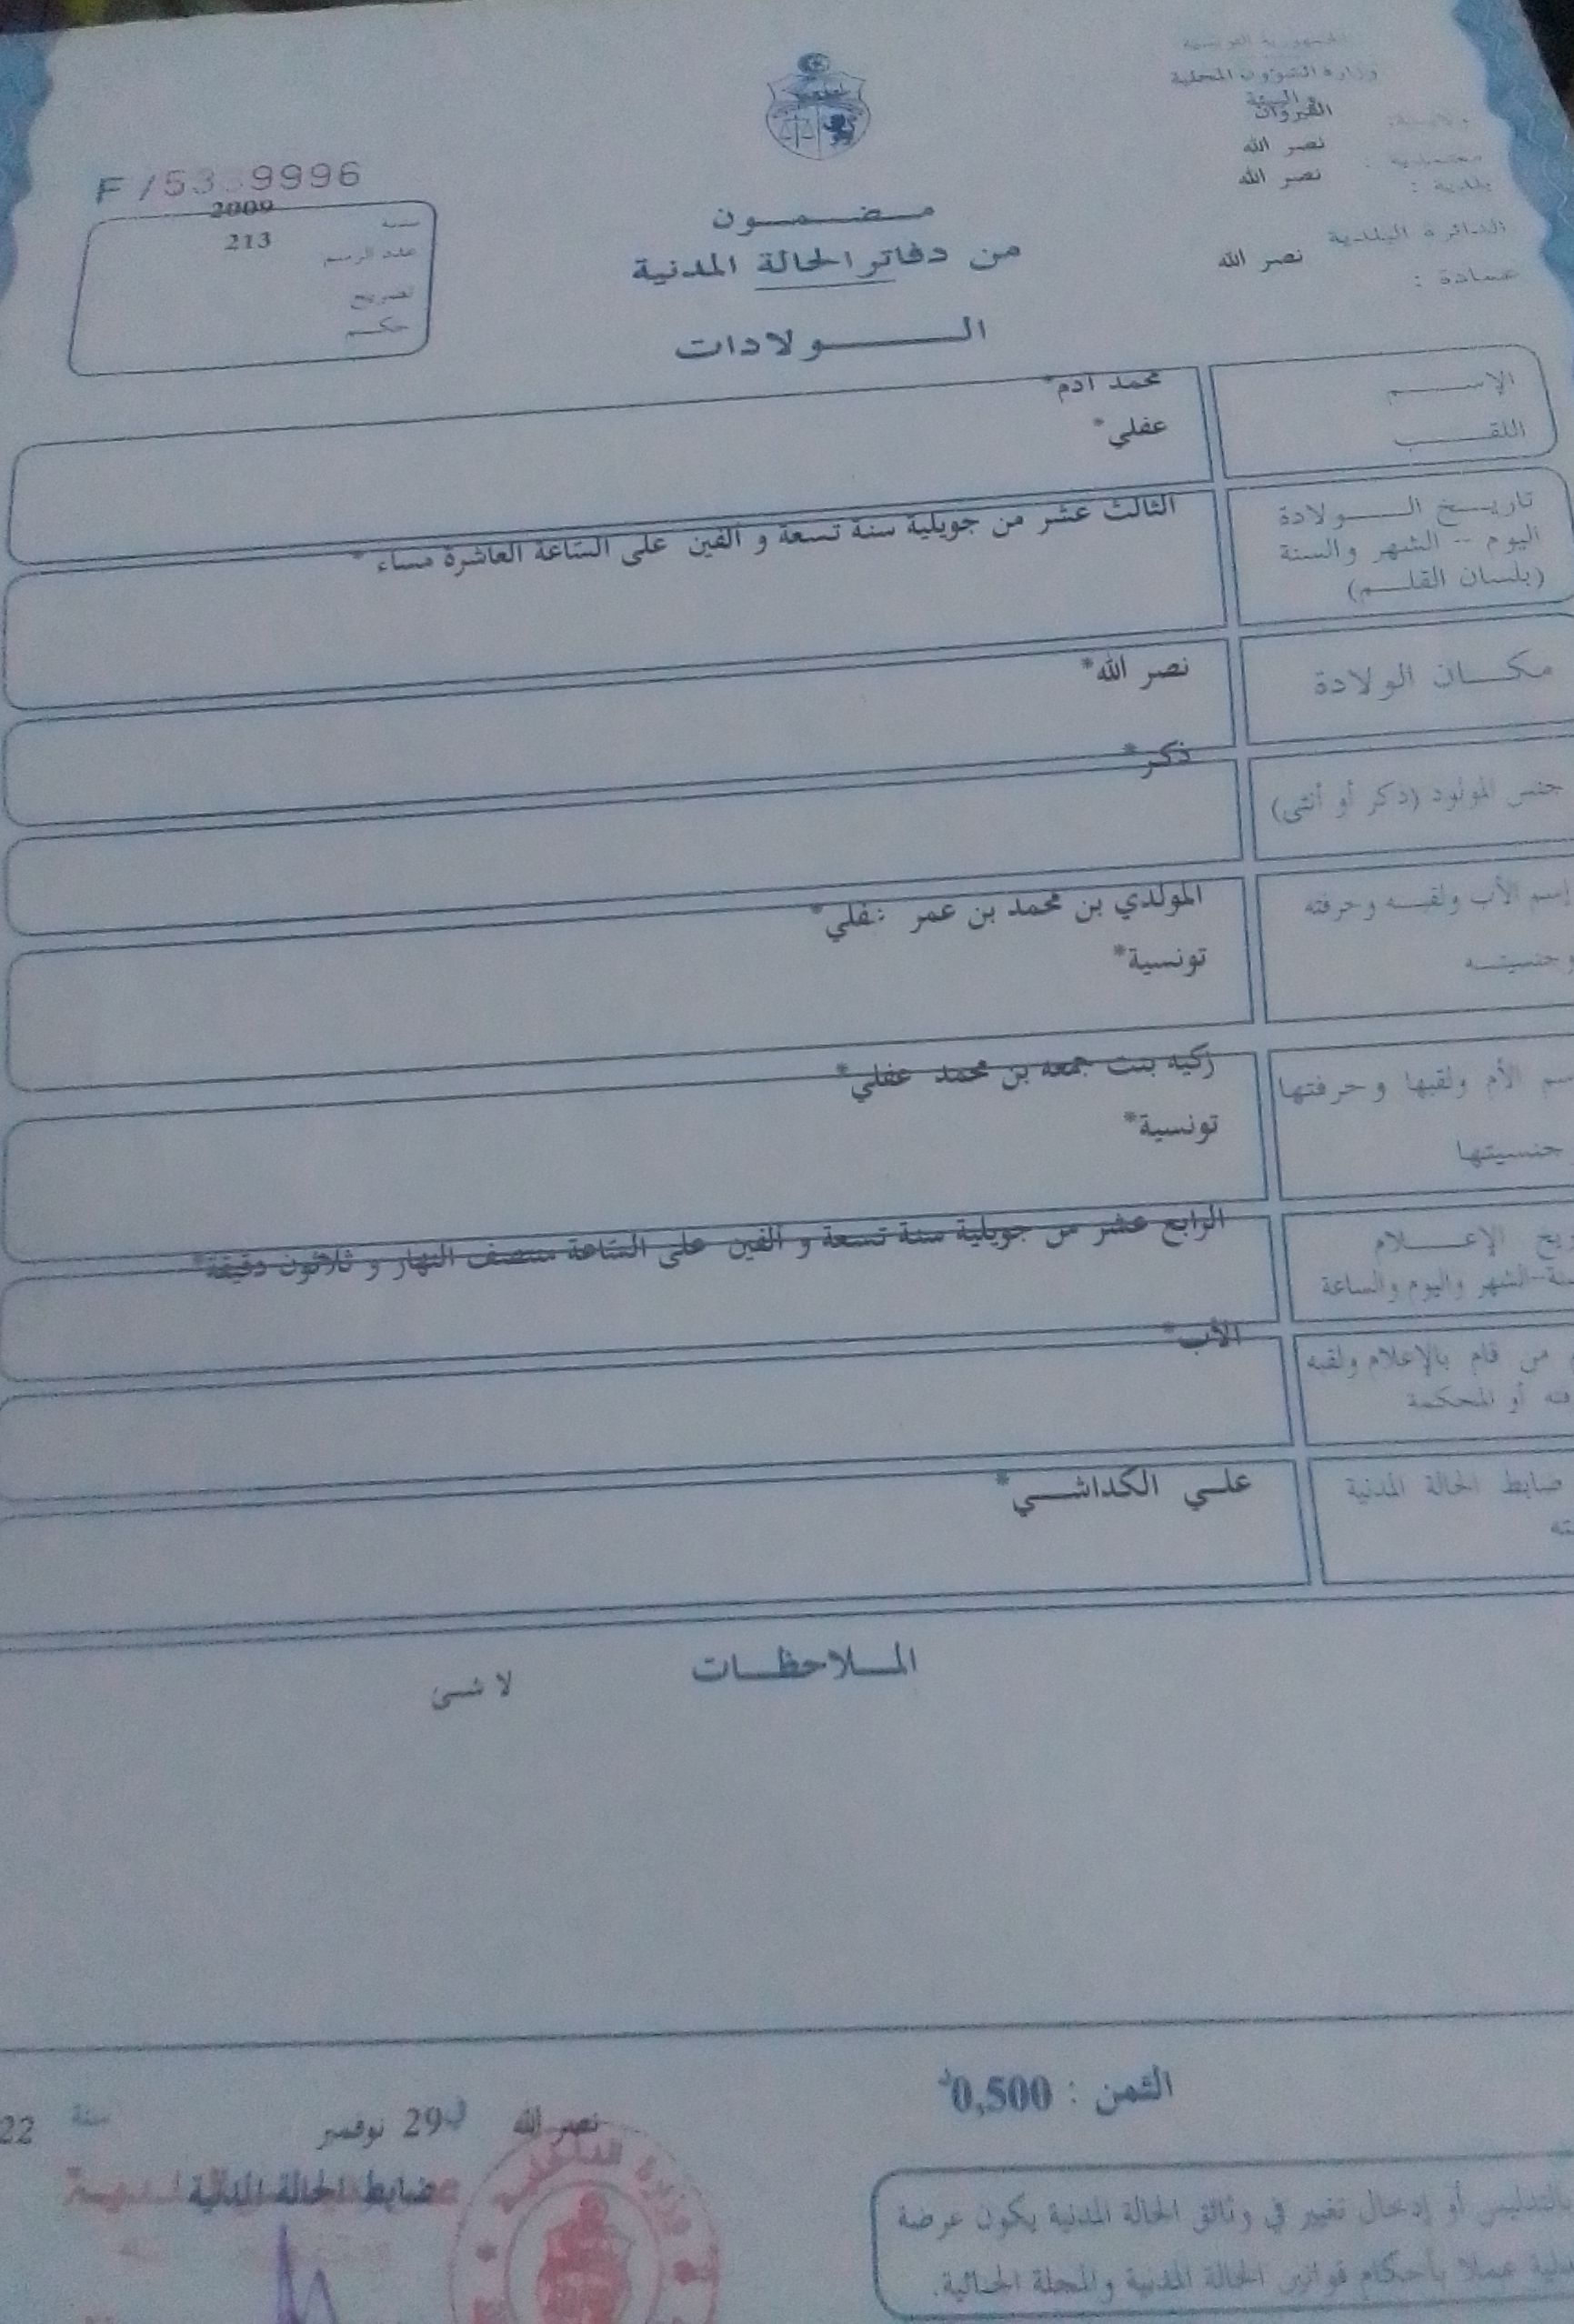 الجمهورية التونسية
وزارة الشؤون المحلية
والبيئة
ولاية: القيروان
معتمدية : نصر الله
بلدية : نصر الله
الدائرة البلدية
عمادة : نصر الله
F/53 9996
سنة 2009
عدد الرسم 213
تصريح
حكم
مضمون
من دفاتر الحالة المدنية
الولادات
الإسم محمد آدم*
اللقب عفلي*
تاريخ الولادة
اليوم - الشهر والسنة
(بلسان القلم)
الثالث عشر من جويلية سنة تسعة و ألفين على الساعة العاشرة مساء *
مكان الولادة نصر الله*
جنس المولود (ذكر أو أنثى) ذكر*
إسم الأب ولقبه وحرفته المولدي بن محمد بن عمر عفلي*
وجنسيته تونسية*
سم الأم ولقبها وحرفتها زكية بنت جمعه بن محمد عفلي*
جنسيتها تونسية*
ريخ الإعلام
نة-الشهر واليوم والساعة
الرابع عشر من جويلية سنة تسعة و ألفين على الساعة منتصف النهار و ثلاثون دقيقة*
من قام بالإعلام ولقبه
فته أو المحكمة
الأب*
ضابط الحالة المدنية علي الكداشي*
الملاحظات
لا شئ
الثمن : 0,500د
نصر الله في 29 نوفمبر سنة 22
ضابط الحالة المدنية
وزارة الداخلية
بالتدليس أو إدخال تغيير في وثائق الحالة المدنية يكون عرضة
عملا بأحكام قوانين الحالة المدنية والمجلة الجنائية.